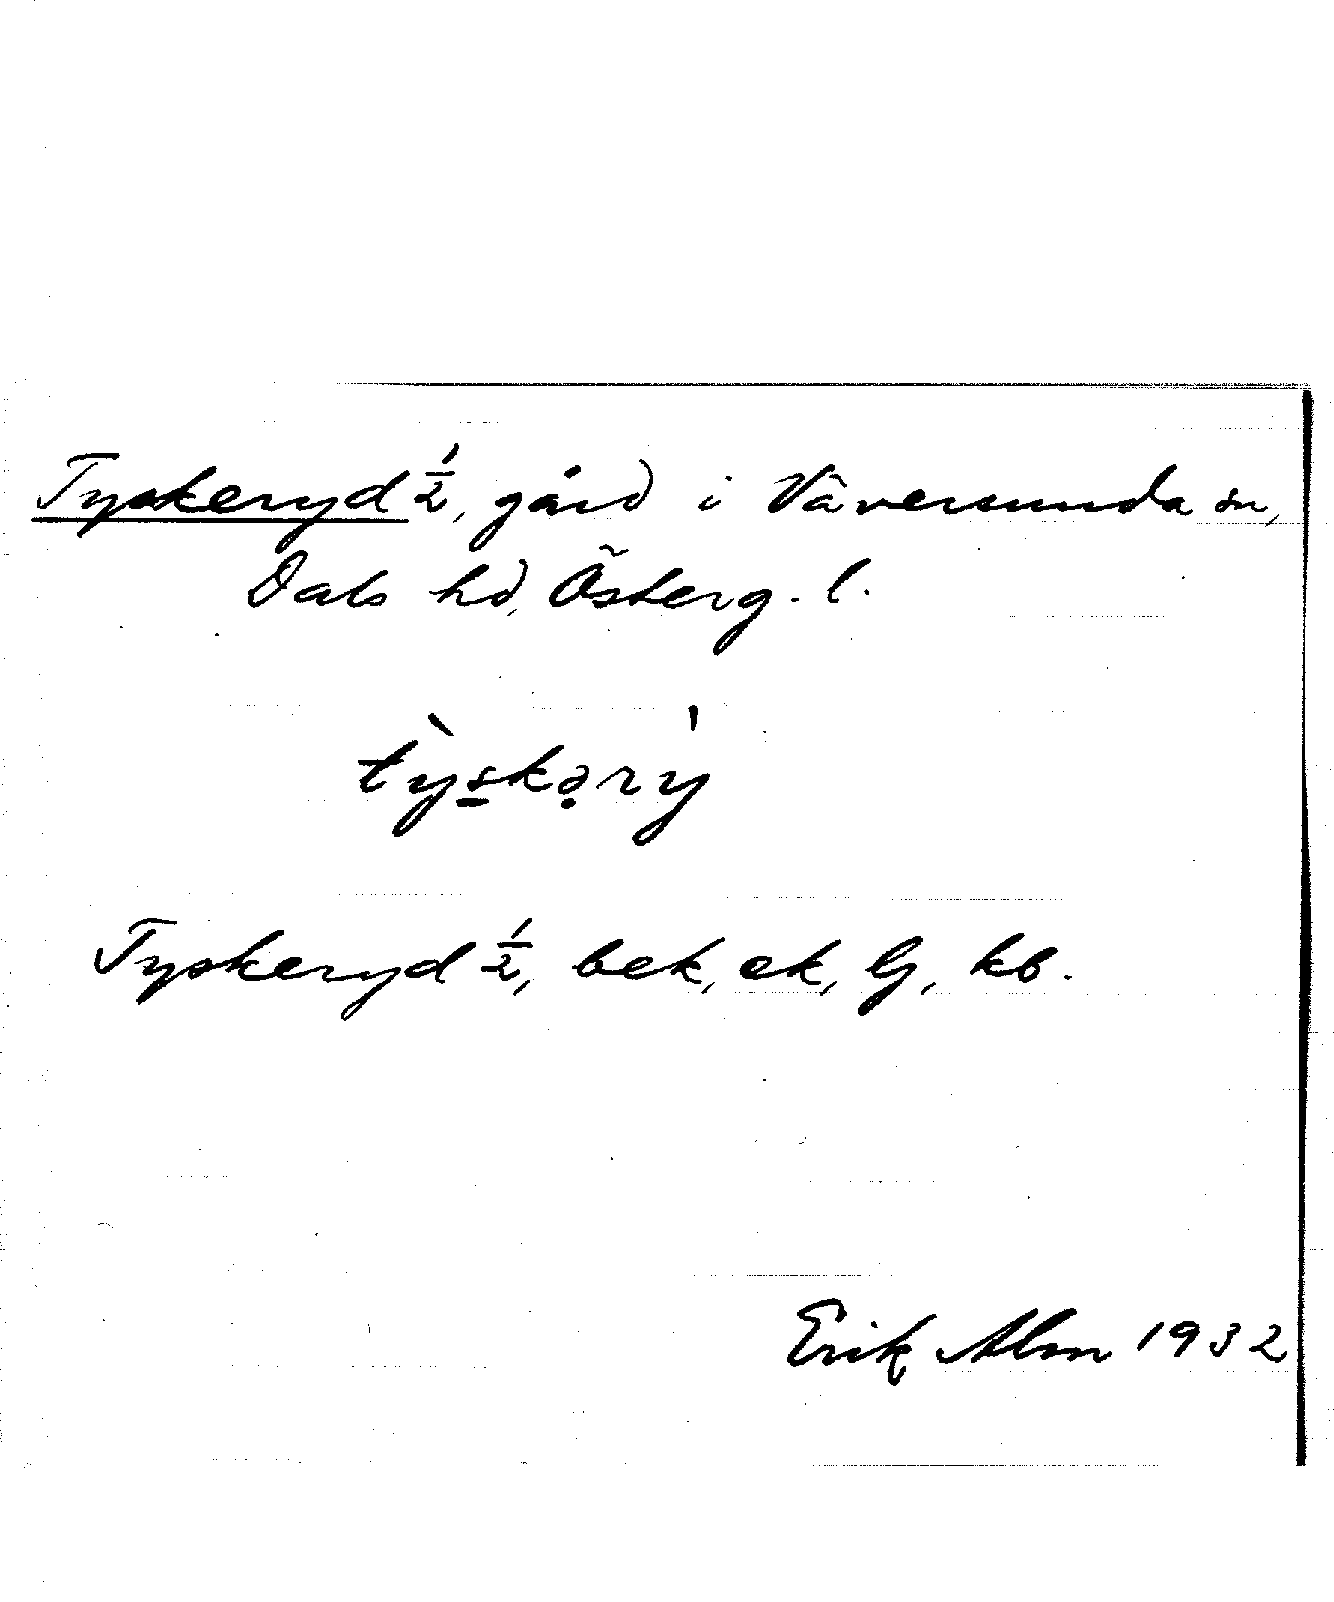 Tyskeryd ½, gård i Väversunda sn,
Dals hd, Österg. l.
tỳskə̣rý
Tyskeryd ½, bek, ek, Gj, kb.
Erik Alm 1932